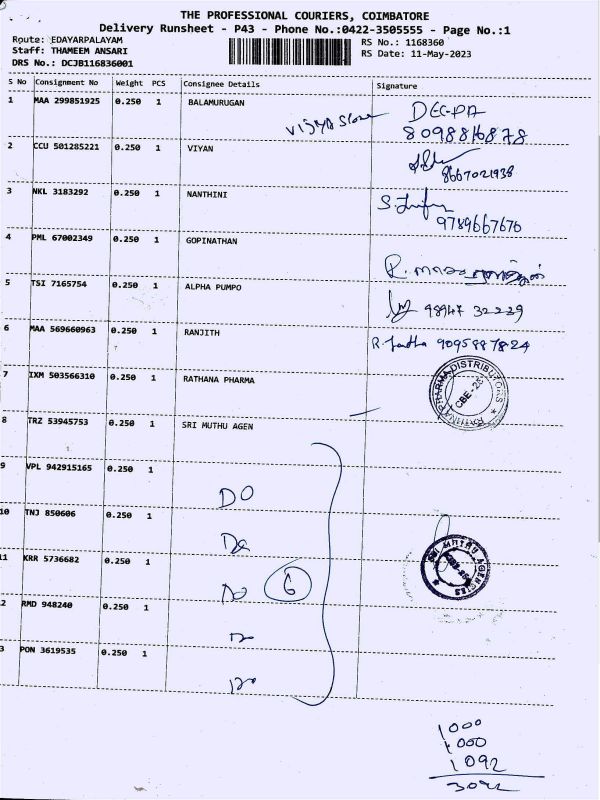 THE PROFESSIONAL COURIERS, COIMBATORE
Delivery Runsheet - P43 - Phone No.:0422-3505555 - Page No.:1
Route: EDAYARPALAYAM
Staff: THAMEEM ANSARI
DRS No.: DCJB116836001
RS No.: 1168360
RS Date: 11-May-2023
S No Consignment No Weight PCS Consignee Details Signature
1 MAA 299851925 0.250 1 BALAMURUGAN
DEEPA
8098816878
2 CCU 501285221 0.250 1 VIYAN
8667021938
3 NKL 3183292 0.250 1 NANTHINI
9789667676
4 PML 67002349 0.250 1 GOPINATHAN
5 TSI 7165754 0.250 1 ALPHA PUMPO
98947 32239
6 MAA 569660963 0.250 1 RANJITH
9095887824
7 IXM 503566310 0.250 1 RATHANA PHARMA
RATHNA PHARMA DISTRIBUTORS
CBE-25
8 TRZ 53945753 0.250 1 SRI MUTHU AGEN
9 VPL 942915165 0.250 1
DO
10 TNJ 850606 0.250 1
Do
SRI MUTHU AGENCIES
11 KRR 5736682 0.250 1
Do
6
2 RMD 948240 0.250 1
Do
3 PON 3619535 0.250 1
Do
1000
1000
1092
3092